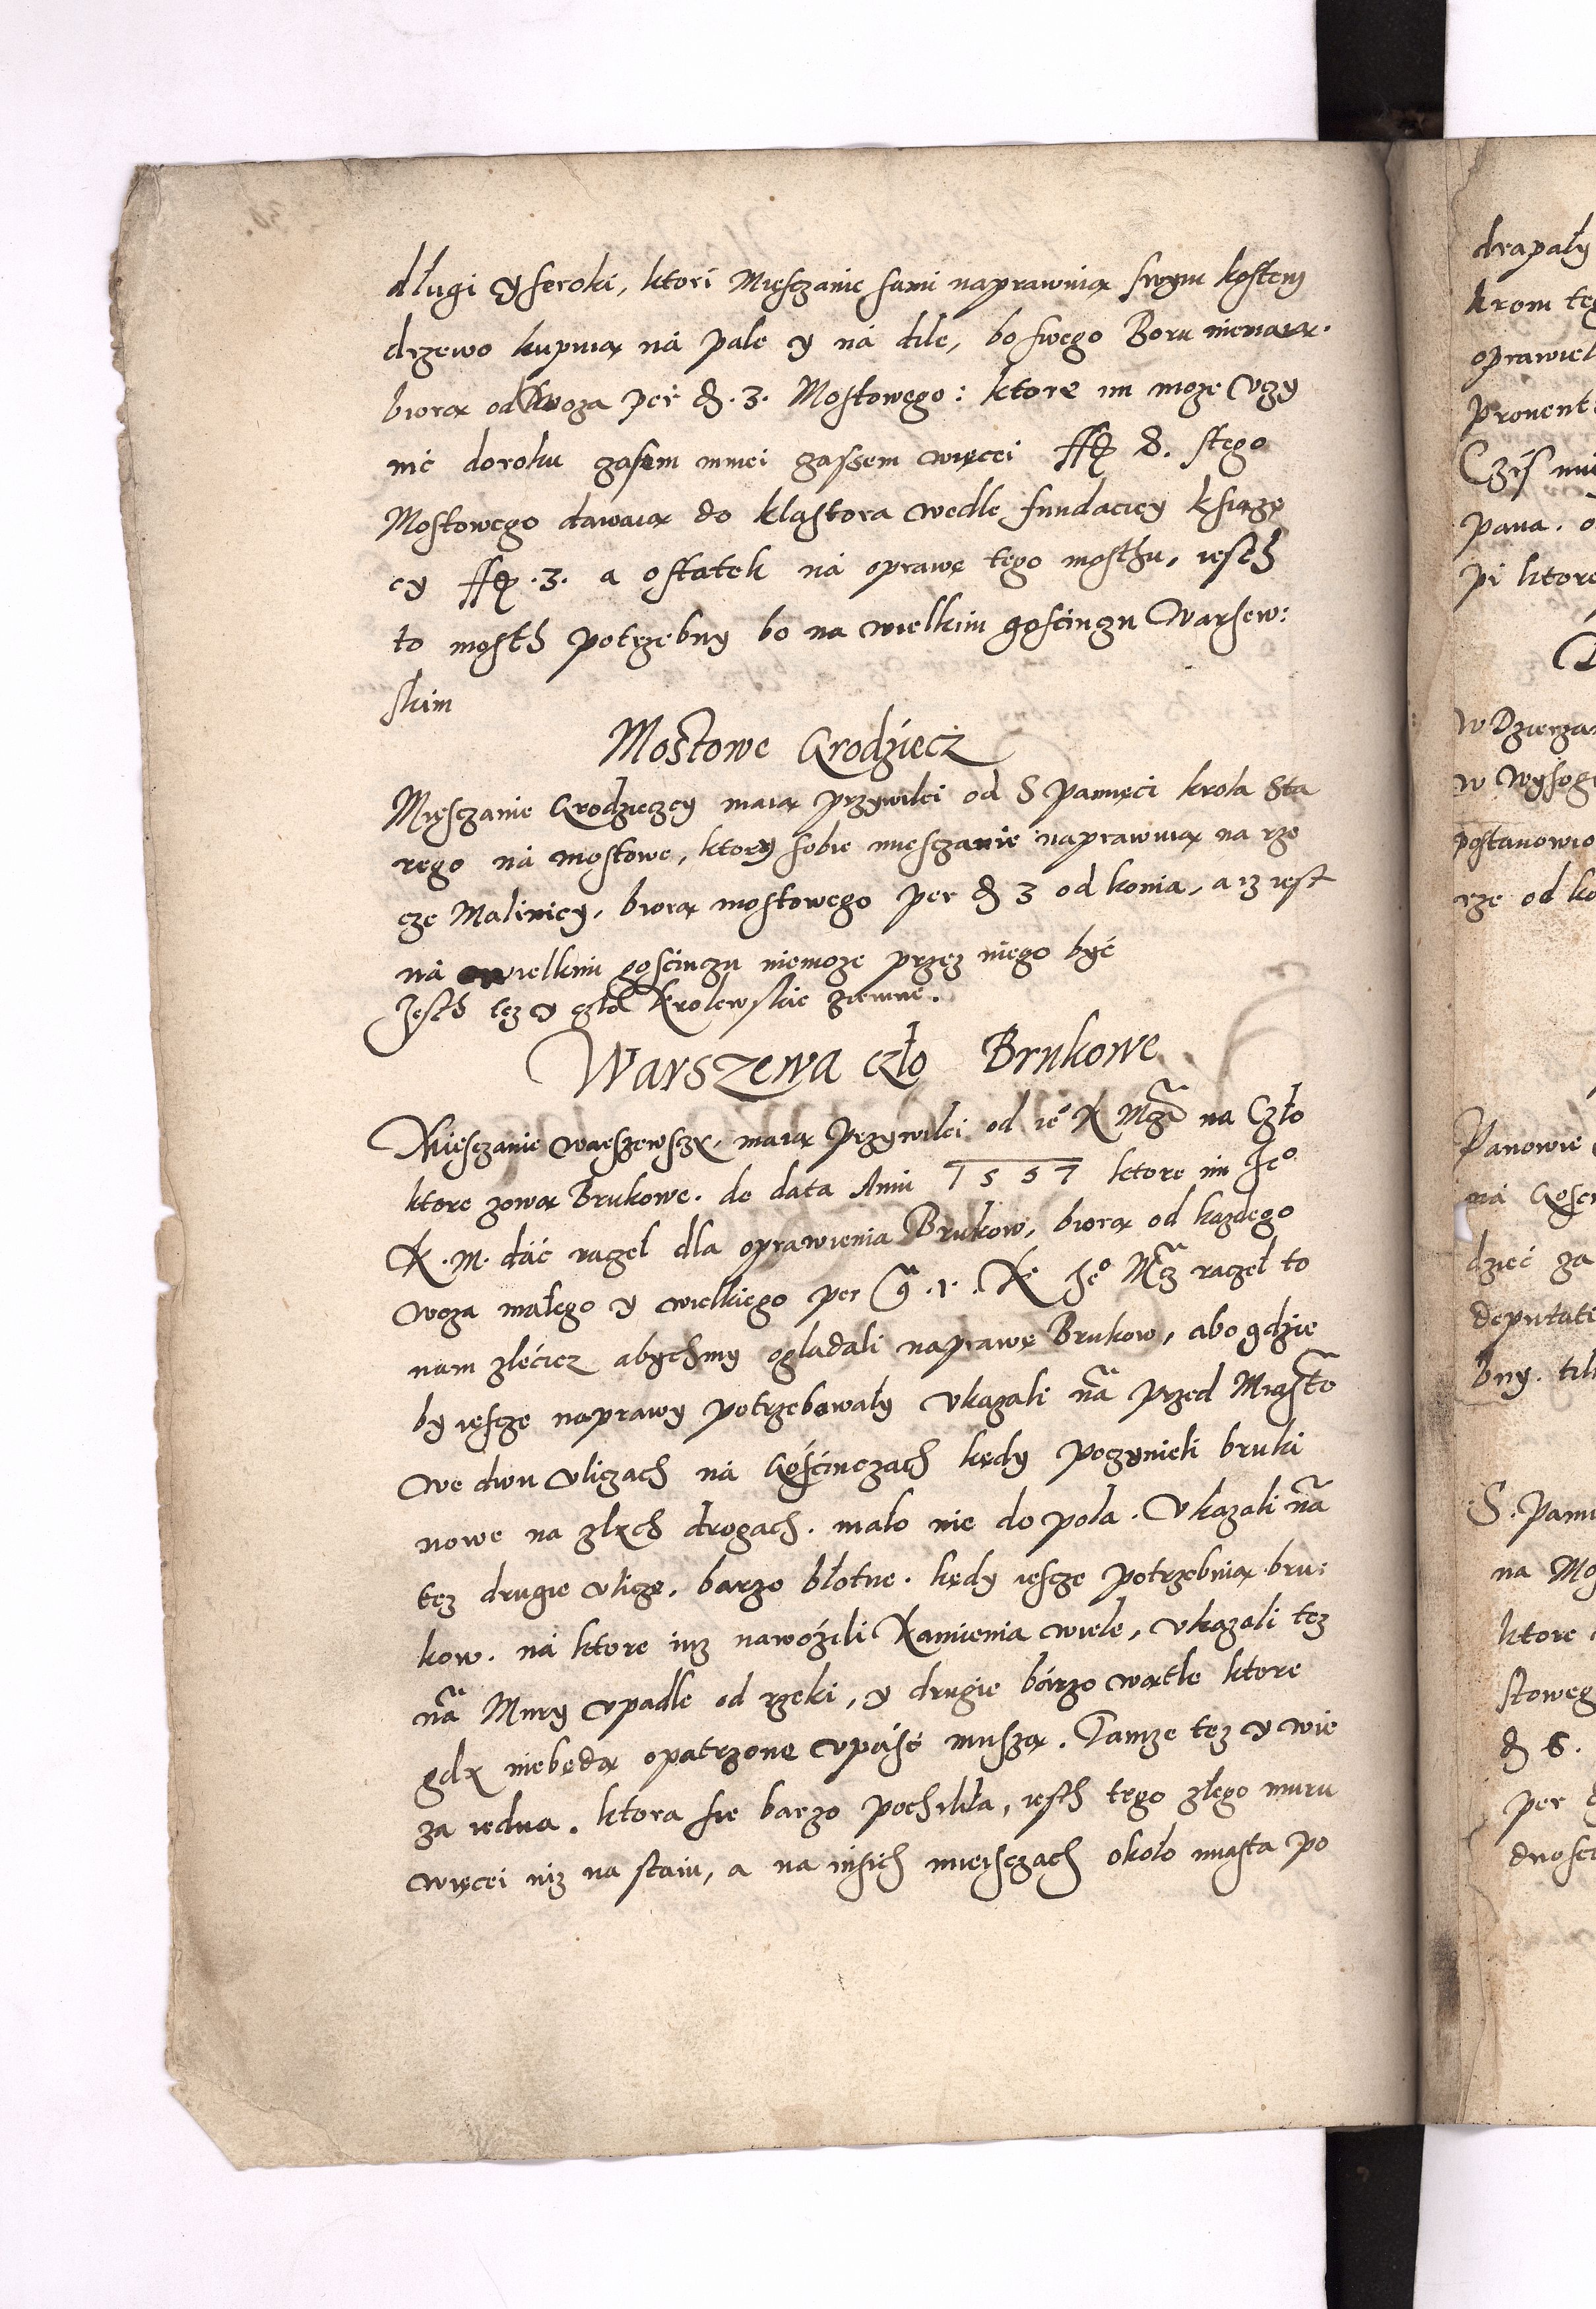 długi y seroki, ktori Miesczanie sami naprawuią swym kostem
drzewo kupuią ná pale y ná dile, bo swego Boru niemaią.
biorą od Woza per đ. 3. Mostowego: ktore im moze vczy
nic doroku czasem mniei czassem więcei ff 8. stego
Mostowego dawaią do klastora wedle fundaciey ksiązę
cy ff .3. a ostatek ná oprawę tego mosthu, iesth
to mosth potrzebny bo na wielkim gościnczu Warsew:
skim
Mostowe Grodziecz
Miesczanie Grodzieczcy maią przywilei od S pamięci krola Sta
rego ná mostowe, ktory sobie miesczanie naprawuią na rze
cze Malinicy, biorą mostowego per đ 3 od konia, a iz iest
ná wielkim gościnczu niemoze przez niego być
Jesth tez y czło Krolewskie ziemne.
Warszewa czło Brukowe
Miesczanie warszewsczy, maią Przywilei od ie° K Mczi na Czło
ktore zową Brukowe. de data Anni 1557 ktore im Je°
K. M. dáć raczel dla oprawienia Brukow, biorą od kazdego
woza małego y wielkiego per .1. K Je° Mcz raczel to
nam zlécicz abychmy ogladali naprawę Brukow, abo gdzie
by iescze naprawy potrzebowały vkazali nã przed Miastẽ
we dwu vliczach ná Gościnczach kędy poczynieli bruki
nowe na złych drogach. mało nie do pola. Vkazali nã
tez drugie vlicze, barzo błotne. kędy iescze potrzebuią bru:
kow. ná ktore iuz nawoźili Kamienia wiele, vkazali tez
nã Mury vpadłe od rzeki, y drugie bárzo wątłe ktore
gdy niebędą opatrzone vpáść muszą. Tamze tez y wie
za iedna. ktora sie barzo pochiliła, iesth tego złego muru
więcei niz na staiu, a na inszich mieisczach około miasta po
drapały
krom teg
oprawiel
provent
pana. o
pi ktore
w Dzierza
w Wysog
postanowio
rze od ko
Panowie
ná Gosci
dzieć za
deputati
bny. til
S. Pami
na Mo
ktore
stoweg
đ 6.
per
dnosci